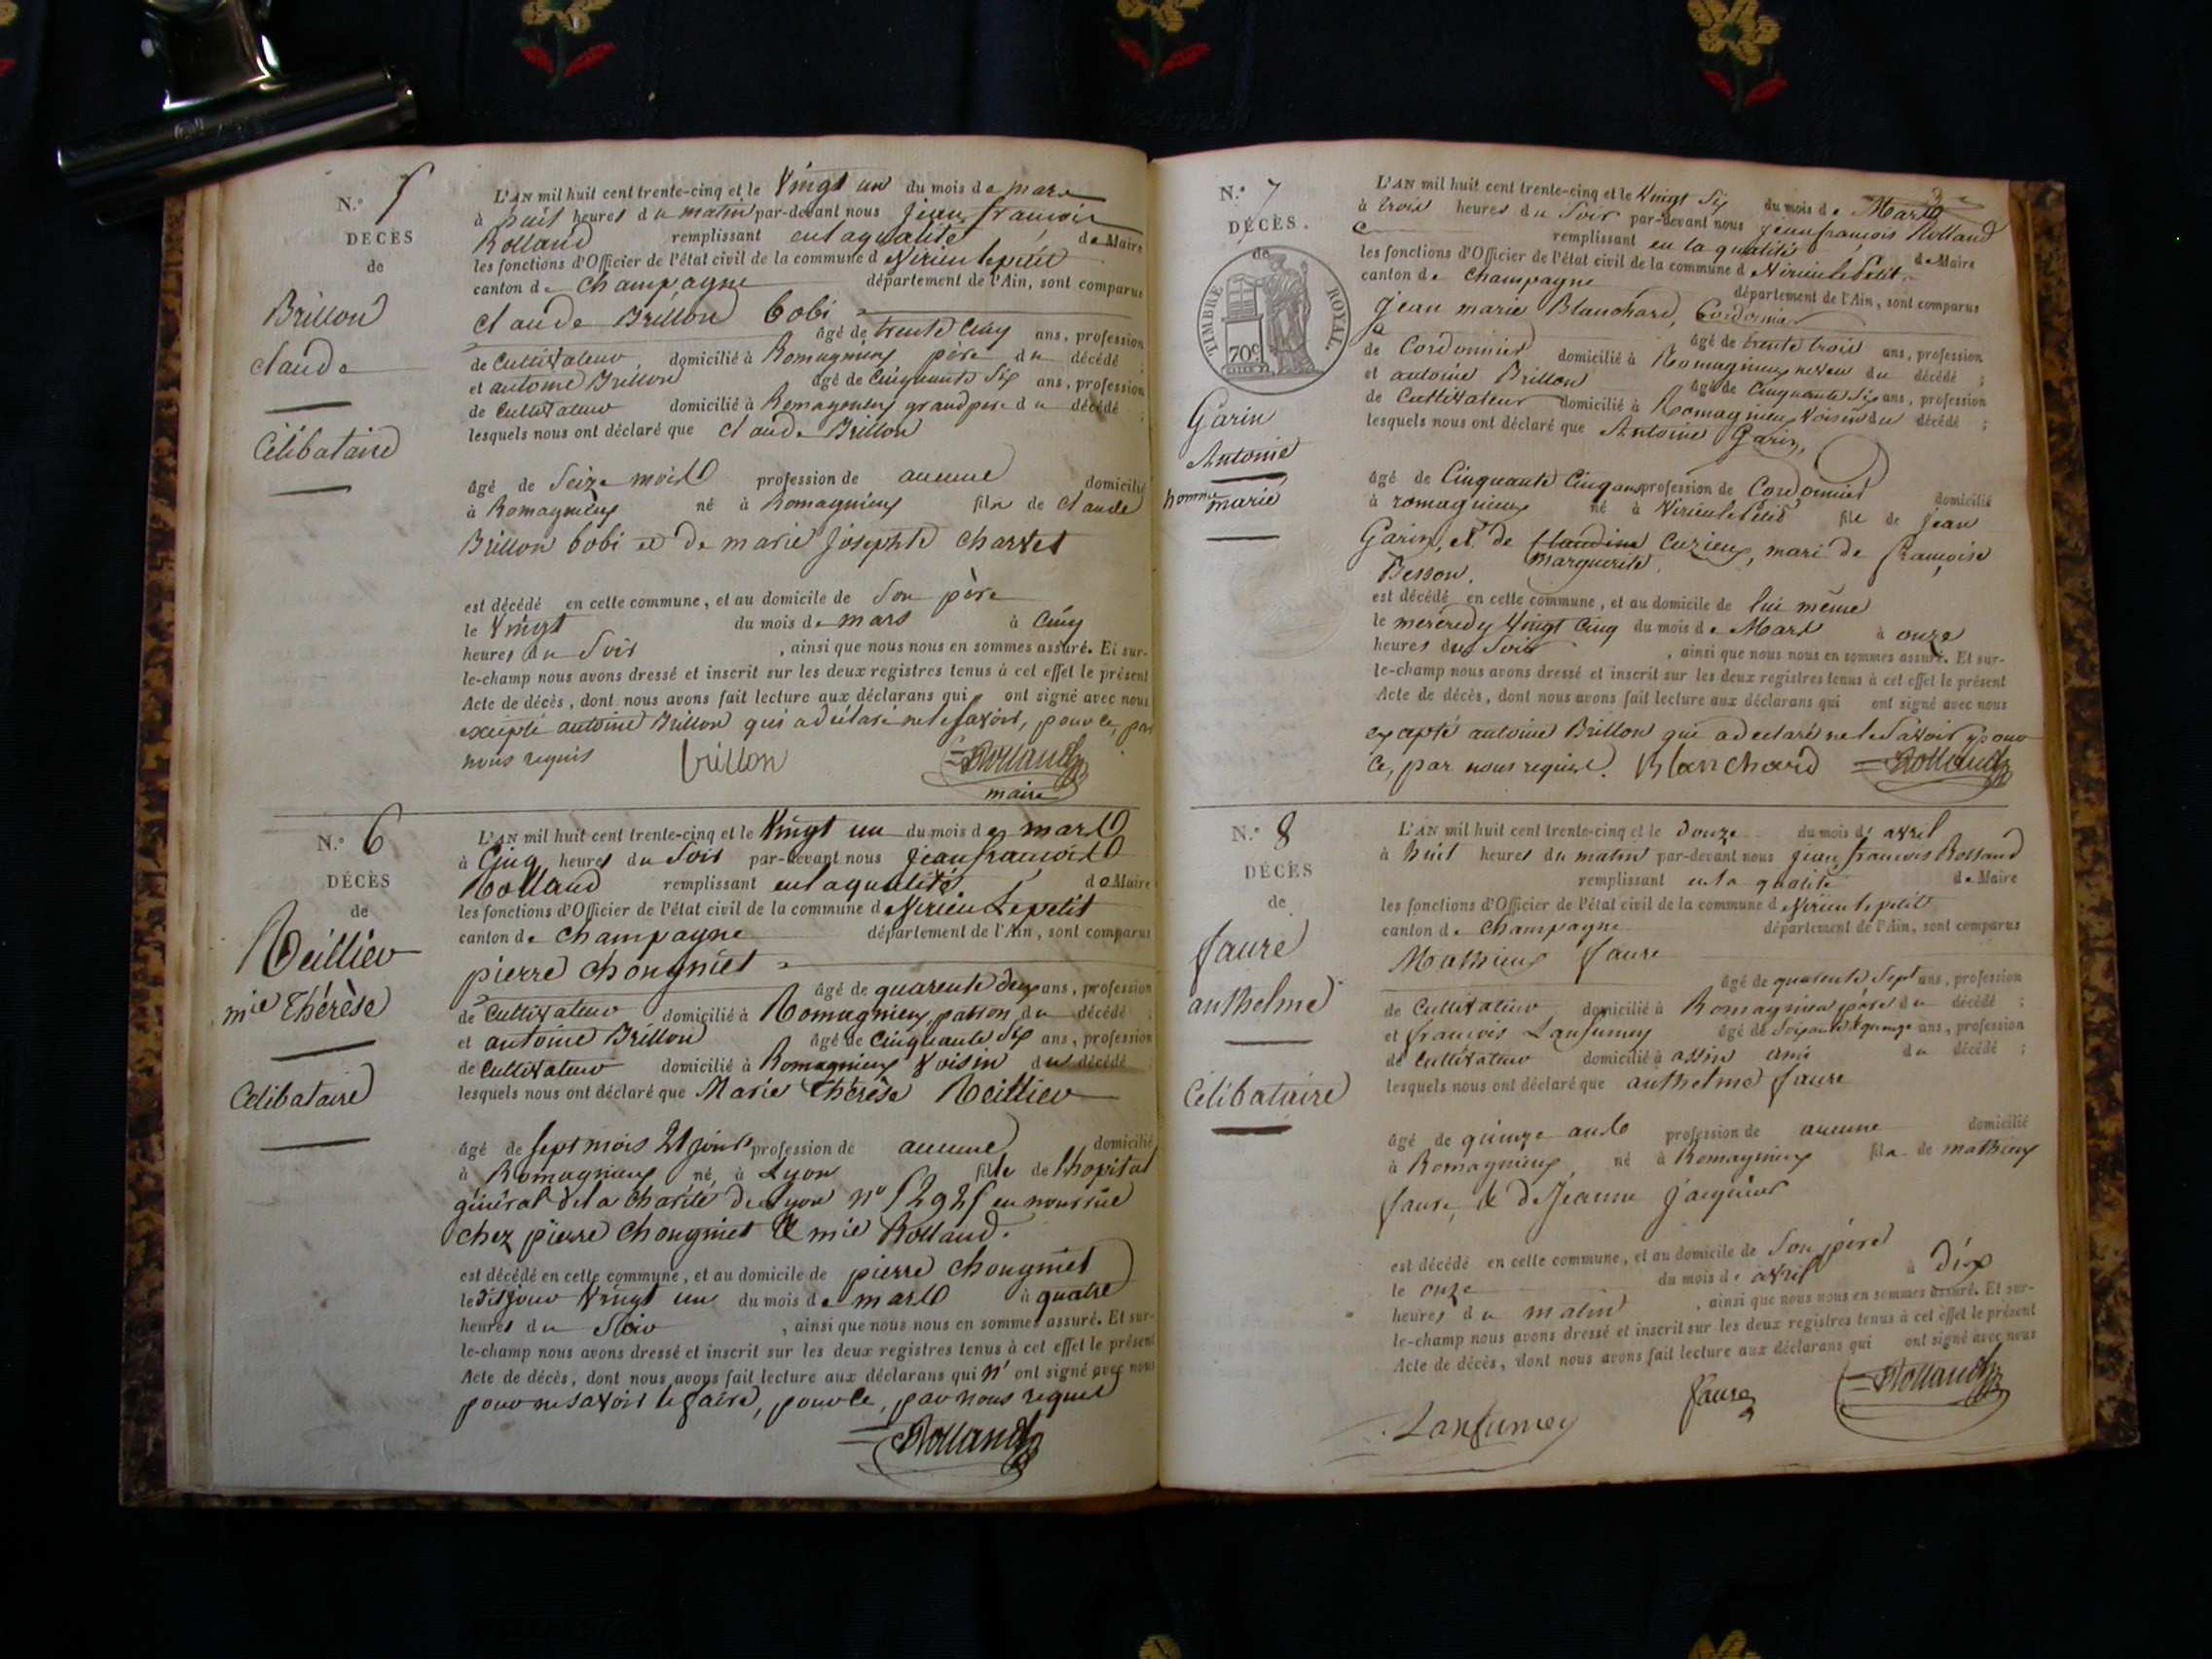 N.° 5
DÉCÈS
de
Brillon
claude
Célibataire
L'AN mil huit cent trente-cinq et le Vingt un du mois de mars
à huit heures du matin par-devant nous jean françois
Rolland remplissant en la qualité de Maire
les fonctions d'Officier de l'état civil de la commune d Virieu le petit
canton de Champagne département de l'Ain, sont comparus
Claude Brillon bobi
âgé de trente cinq ans, profession
de Cultivateur domicilié à Romagnieux père du décédé ;
et antoine Brillon âgé de Cinquante Six ans, profession
de Cultivateur domicilié à Romagnieux grand pere du décédé ;
lesquels nous ont déclaré que Claude Brillon
âgé de Seize mois profession de aucune domicilié
à Romagnieux né à Romagnieux fils de Claude
Brillon bobi et de marie josephte Charvet
est décédé en cette commune, et au domicile de Son père
le Vingt du mois de mars à Cinq
heures du Soir , ainsi que nous nous en sommes assuré. Et sur-
le-champ nous avons dressé et inscrit sur les deux registres tenus à cet effet le présent
Acte de décès, dont nous avons fait lecture aux déclarans qui ont signé avec nous
excepté antoine Brillon qui a déclaré ne le Savoir, pour ce, par
nous requis brillon Rolland
maire
N.° 6
DÉCÈS
de
Meillieu
mie Thérèse
Célibataire
L'AN mil huit cent trente-cinq et le Vingt un du mois de mars
à Cinq heures du Soir par-devant nous jean françois
Rolland remplissant en la qualité de Maire
les fonctions d'Officier de l'état civil de la commune d Virieu Le petit
canton de Champagne département de l'Ain, sont comparus
pierre Chongniet
âgé de quarente deux ans, profession
de Cultivateur domicilié à Romagnieux patron du décédé ;
et antoine Brillon âgé de Cinquante Six ans, profession
de Cultivateur domicilié à Romagnieux Voisin du décédé
lesquels nous ont déclaré que Marie Thérèse Meillieu
âgé de Sept mois 21 jours profession de aucune domicilié
à Romagnieux né à Lyon fille de l'hopital
général de la Charité de Lyon n° 52985 en nourrice
chez pierre Chongniet & mie Rolland.
est décédé en cette commune, et au domicile de pierre Chongniet
le dit jour Vingt un du mois de mars à quatre
heures du Soir , ainsi que nous nous en sommes assuré. Et sur-
le-champ nous avons dressé et inscrit sur les deux registres tenus à cet effet le présent
Acte de décès, dont nous avons fait lecture aux déclarans qui n'ont signé avec nous
pour ne Savoir le faire, pour ce, par nous requis
Rolland
N.° 7
DÉCÈS.
de
TIMBRE ROYAL.
70c
Garin
Antoine
homme marié
3
L'AN mil huit cent trente-cinq et le Vingt Six du mois de Mars
à trois heures du Soir par-devant nous jean françois Rolland
remplissant en la qualité de Maire
les fonctions d'Officier de l'état civil de la commune d Virieu le Petit
canton de Champagne département de l'Ain, sont comparus
jean marie Blanchard, Cordonnier
âgé de trente trois ans, profession
de Cordonnier domicilié à Romagnieux neveu du décédé ;
et antoine Brillon âgé de Cinquante Six ans, profession
de Cultivateur domicilié à Romagnieux Voisin du décédé ;
lesquels nous ont déclaré que Antoine Garin,
âgé de Cinquante Cinq ans profession de Cordonnier domicilié
à romagnieux né à Virieu le Petit fils de jean
Garin, et de Claudine Curieux, mari de françoise
Marguerite
Besson.
est décédé en cette commune, et au domicile de lui même
le mercredy Vingt Cinq du mois de Mars à onze
heures du Soir , ainsi que nous nous en sommes assuré. Et sur-
le-champ nous avons dressé et inscrit sur les deux registres tenus à cet effet le présent
Acte de décès, dont nous avons fait lecture aux déclarans qui ont signé avec nous
excepté antoine Brillon qui a déclaré ne le Savoir, pour
Ce, par nous requis. Blanchard Rolland
N.° 8
DÉCÈS
de
faure
anthelme
Célibataire
L'AN mil huit cent trente-cinq et le douze du mois d'avril
à huit heures du matin par-devant nous jean françois Rolland
remplissant en la qualité de Maire
les fonctions d'Officier de l'état civil de la commune d Virieu le petit
canton de Champagne département de l'Ain, sont comparus
Mathieux faure
âgé de quarente Sept ans, profession
de Cultivateur domicilié à Romagnieu père du décédé ;
et françois Lanfumey âgé de Soixante & quinze ans, profession
de Cultivateur domicilié à assin ami du décédé ;
lesquels nous ont déclaré que anthelme faure
âgé de quinze ans profession de aucune domicilié
à Romagnieux, né à Romagnieux fils de mathieux
faure, & de jeanne jacquier
est décédé en cette commune, et au domicile de Son père
le onze du mois d'avril à dix
heures du matin , ainsi que nous nous en sommes assuré. Et sur-
le-champ nous avons dressé et inscrit sur les deux registres tenus à cet effet le présent
Acte de décès, dont nous avons fait lecture aux déclarans qui ont signé avec nous
Lanfumey faure Rolland